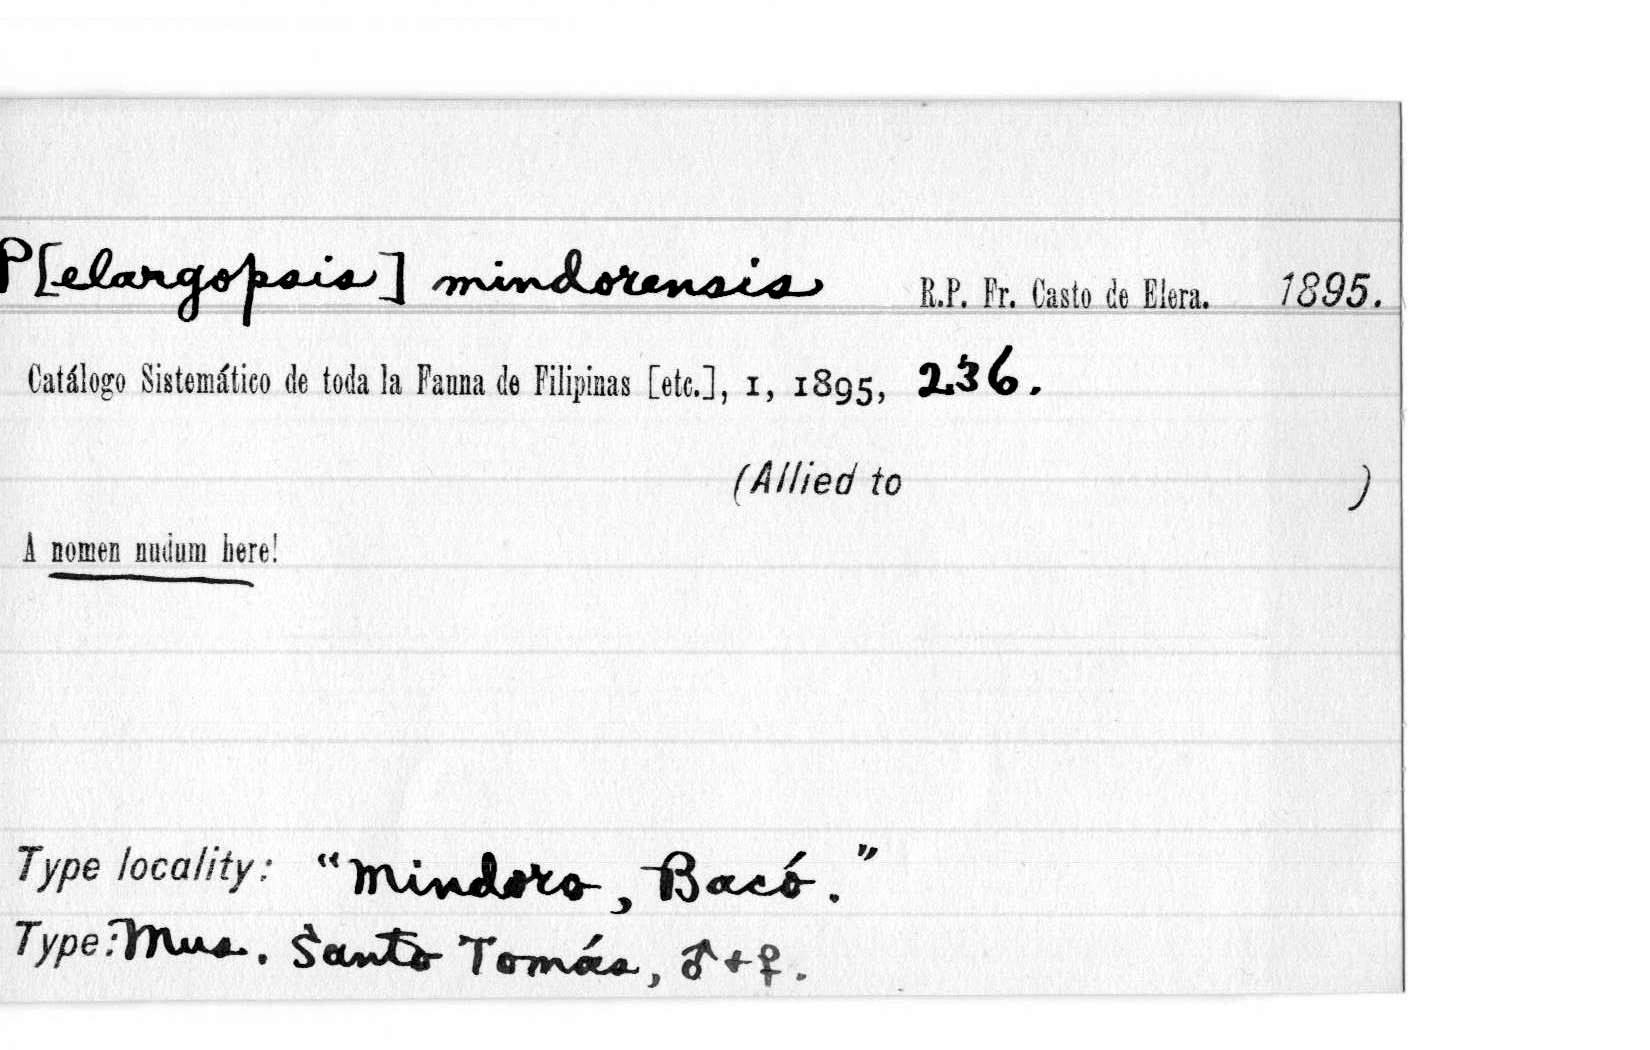 P[elargopsis] mindorensis R.P. Fr. Casto de Elera. 1895.
Catálogo Sistemático de toda la Fauna de Filipinas [etc.], I, 1895, 236.
(Allied to )
A nomen nudum here!
Type locality: "Mindoro, Bacó."
Type: Mus. Santo Tomás, ♂+♀.